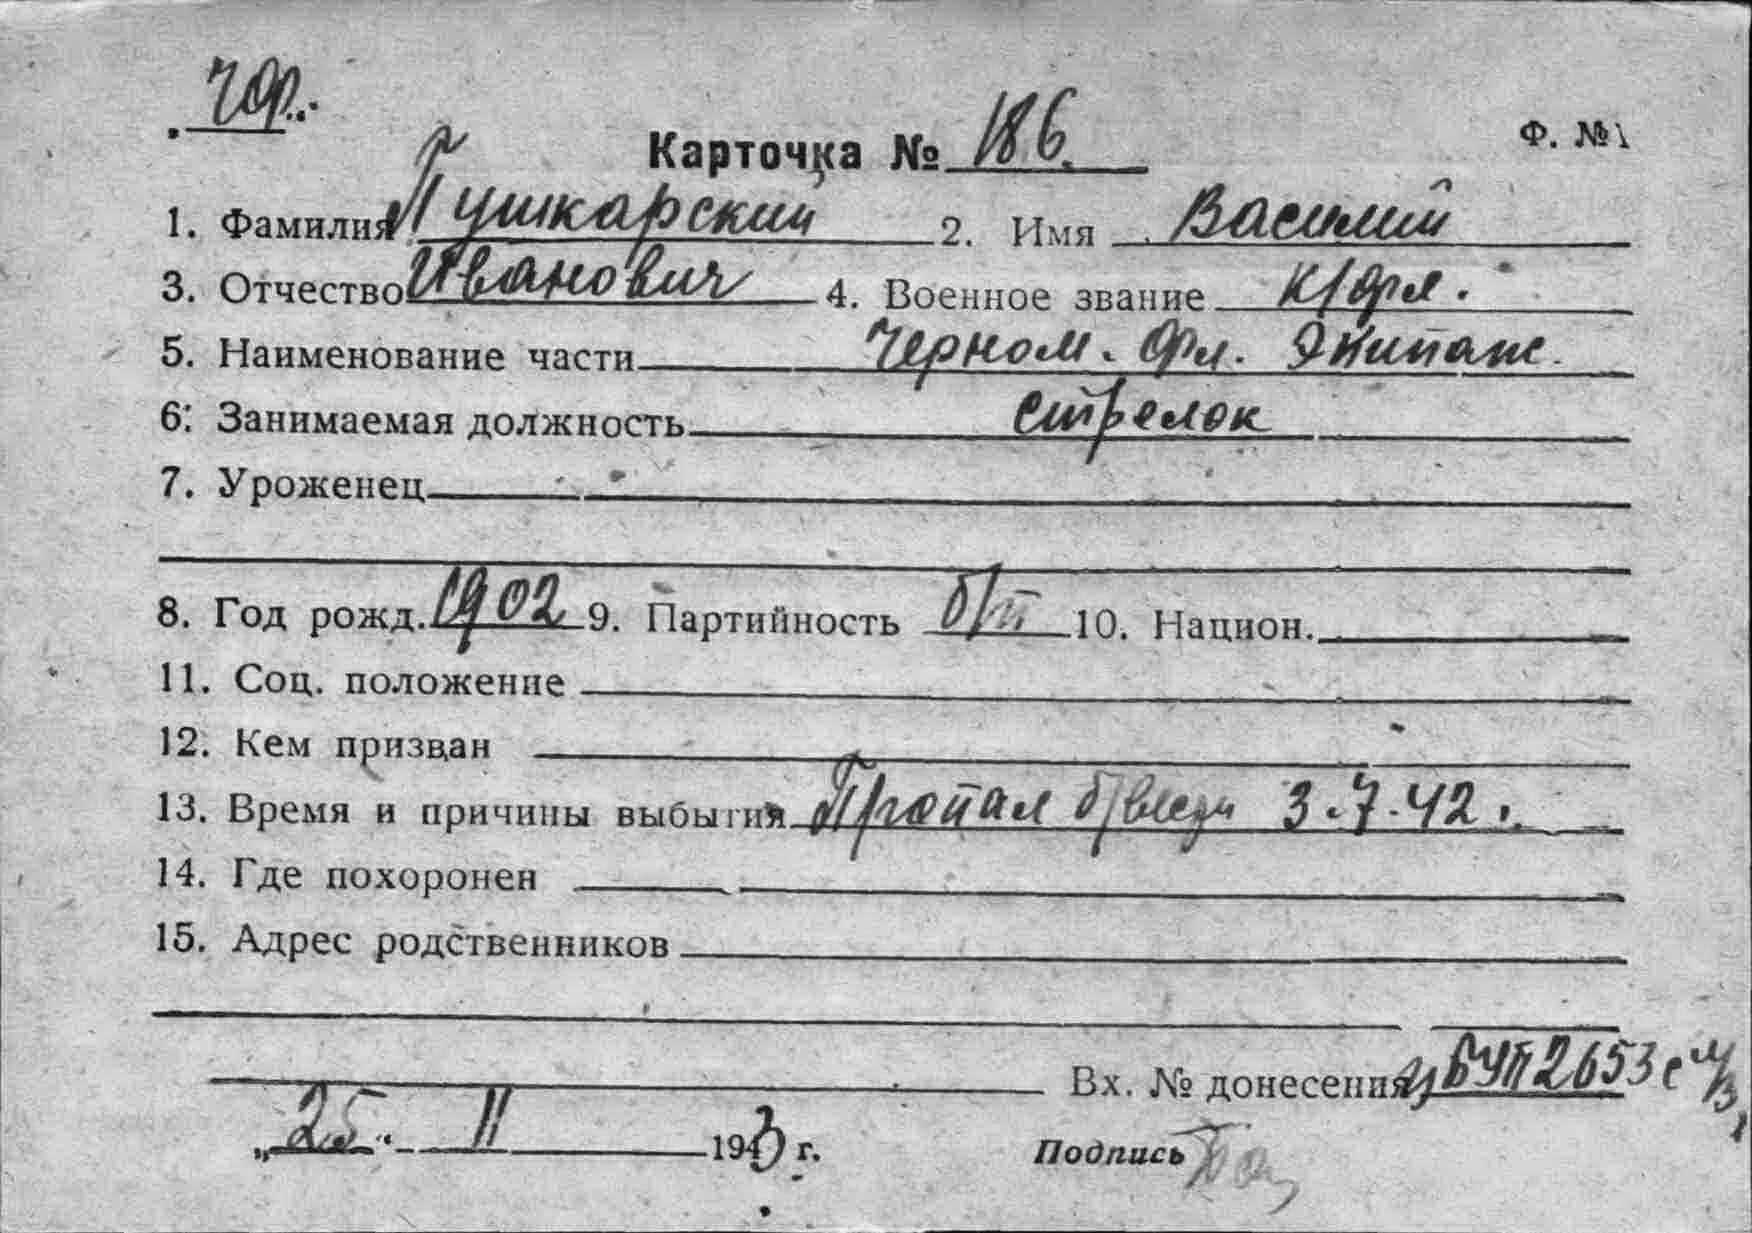 ЧФ.
Карточка № 186.
Ф. №1
1. Фамилия Пушкарский 2. Имя Василий
3. Отчество Иванович 4. Военное звание к/фл.
5. Наименование части Черном. Фл. Экипаж.
6. Занимаемая должность стрелок
7. Уроженец
8. Год рожд. 1902 9. Партийность б/п 10. Национ.
11. Соц. положение
12. Кем призван
13. Время и причины выбытия Пропал б/вести 3.7.42 г.
14. Где похоронен
15. Адрес родственников
Вх. № донесения БУП 2653 с
„25“ II 1943 г. Подпись